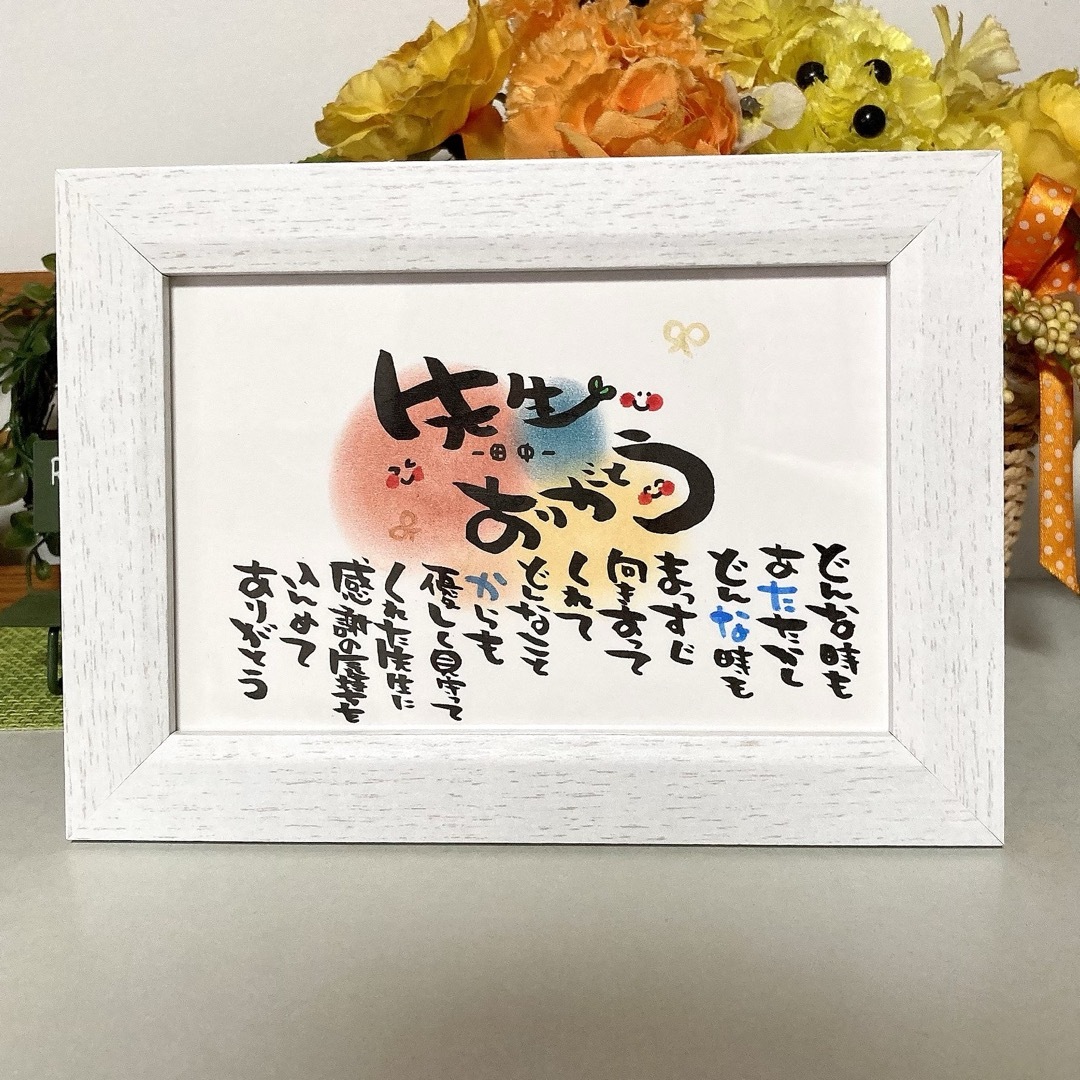 先生
-田中-
ありがとう
どんな時も
あたたかく
どんな時も
まっすぐ
向きあって
くれて
どんなこと
からも
優しく見守って
くれた先生に
感謝の気持ちを
こめて
ありがとう